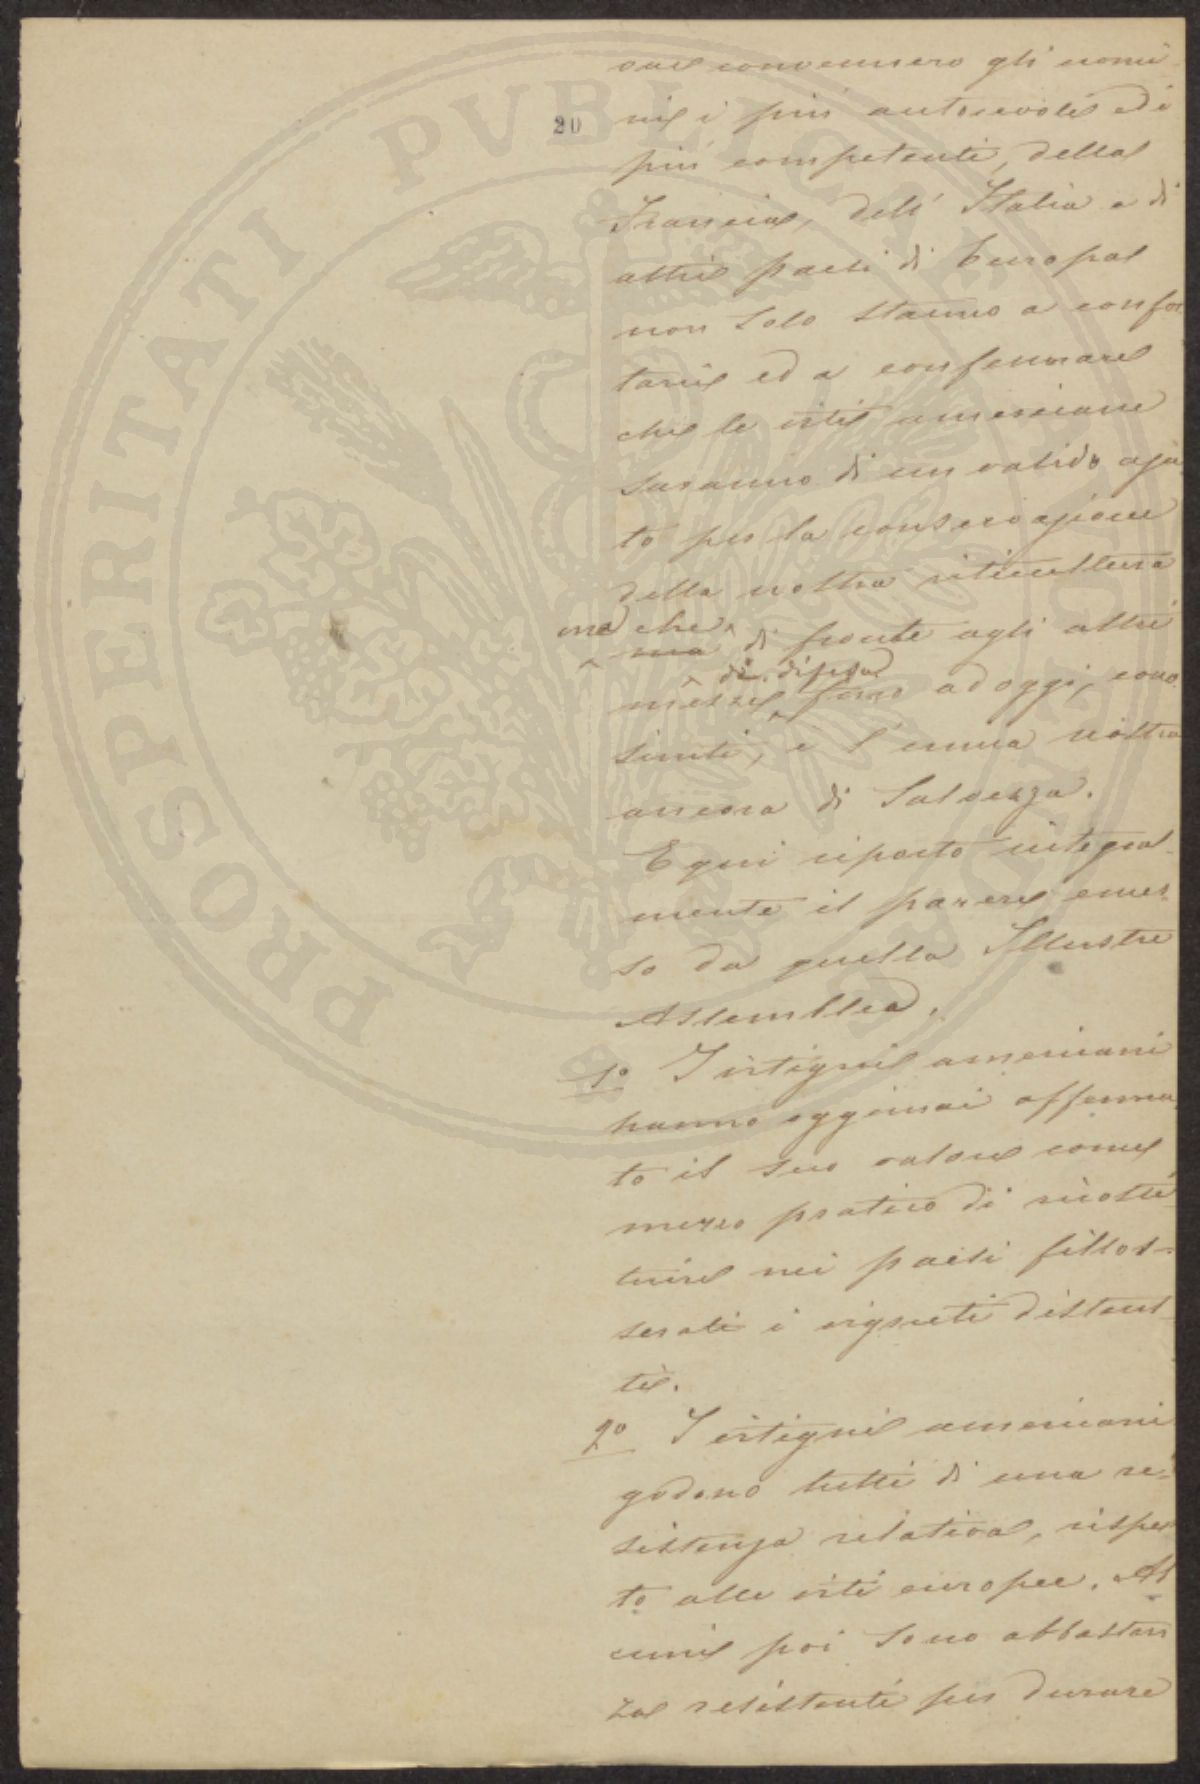 20
ove convennero gli uomi-
ni i più autorevoli ed i
più competenti, della
Francia, dell' Italia e di
altri paesi di Europa
non solo stanno a confor
tare ed a confermare
che le viti americane
saranno di un valido aju
to per la conservazione
della nostra viticultura
ma che ma di fronte agli altri
di difesa
mezzi fino ad oggi, cono
sciuti, è l'unica nostra
ancora di salvezza.
E qui riporto integral-
mente il parere emes-
so da quella Illustre
Assemblea.
1° I vitigni americani
hanno oggimai afferma
to il suo valore come
mezzo pratico di ricosti
tuire nei paesi fillos-
serati i vigneti distrut
ti.
2° I vitigni americani
godono tutti di una re-
sistenza relativa, rispet
to alle viti europee. Al
cuni poi sono abbastan
za resistenti per durare
PROSPERITATI PVBLICAE AVGENDAE